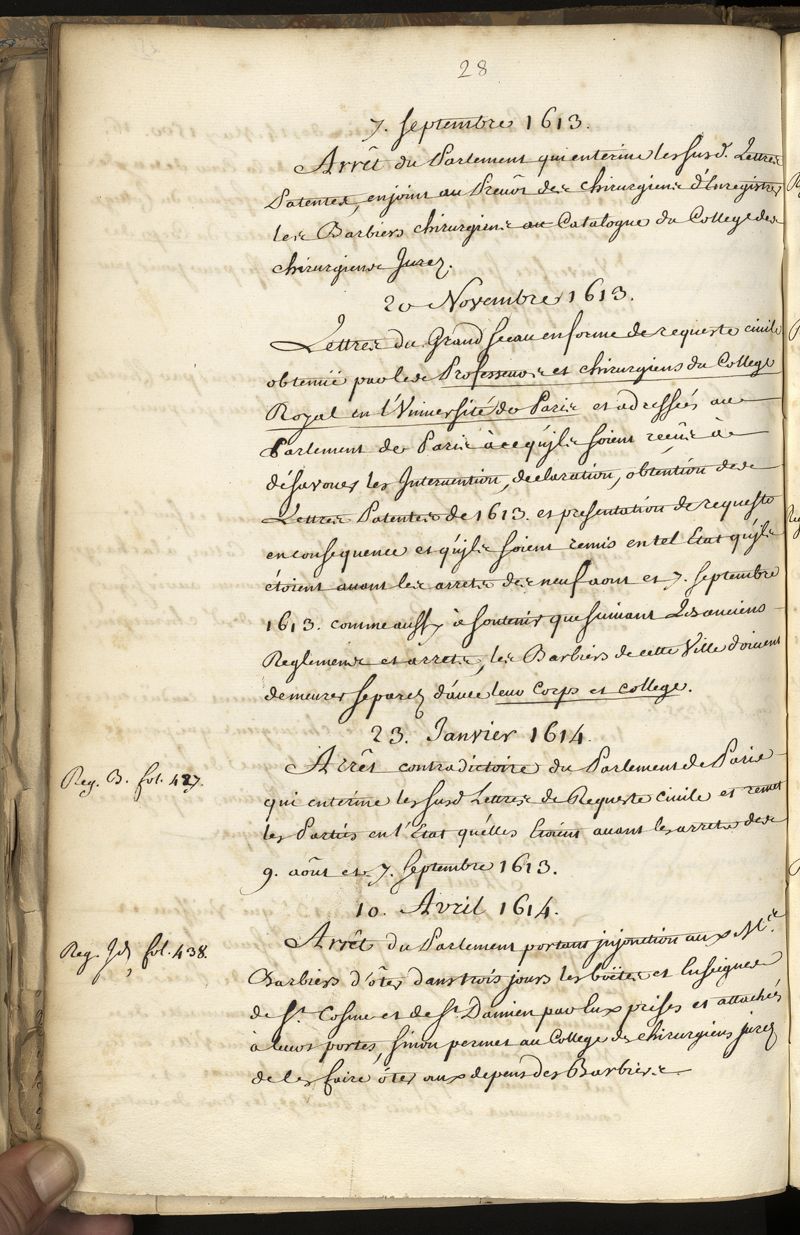 28
7. Septembre 1613.
Arrêt du Parlement qui enterine les susd. Lettres
Patentes, enjoint au Prevôt des chirurgiens d'Enregistrer
les Barbiers chirurgiens au Catalogue du College des
chirurgiens Jurez.
20 Novembre 1613.
Lettres du Grand Sceau en forme de requeste civile
obtenüe par les Professeurs et chirurgiens du College
Royal en l'Université de Paris et adressées au
Parlement de Paris à ce qu'jls soient reçûs à
désavouer les Intervention, declaration, obtention des
Lettres Patentes de 1613. et presentation de requeste
en consequence et qu'jls soient remis en tel Etat qu'jls
étoient avant les arrets des neuf aout et 7. Septembre
1613. comme aussy à soutenir que suivant Les anciens
Reglemens et arrets, les Barbiers de cette Ville doivent
demeurer separez d'avec leur Corps et College.
23. Janvier 1614.
Reg. B. fol. 427.
Arrêt contradictoire du Parlement de Paris
qui enterine les susd Lettres de Requeste Civile et remet
les Parties en l'Etat qu'elles Etoient avant les arrets des
9. août et 7. Septembre 1613.
10. Avril 1614.
Reg. Jd, fol. 438.
Arrêt du Parlement portant jnjonction aux Mes.
Barbiers d'ôter dans trois jours les boëtes et Enseignes
de St. Cosme et de St. Damien par Eux prises et attachés
à leurs portes, sinon permet au College des chirurgiens jurez
de les faire ôter aux depens des Barbiers